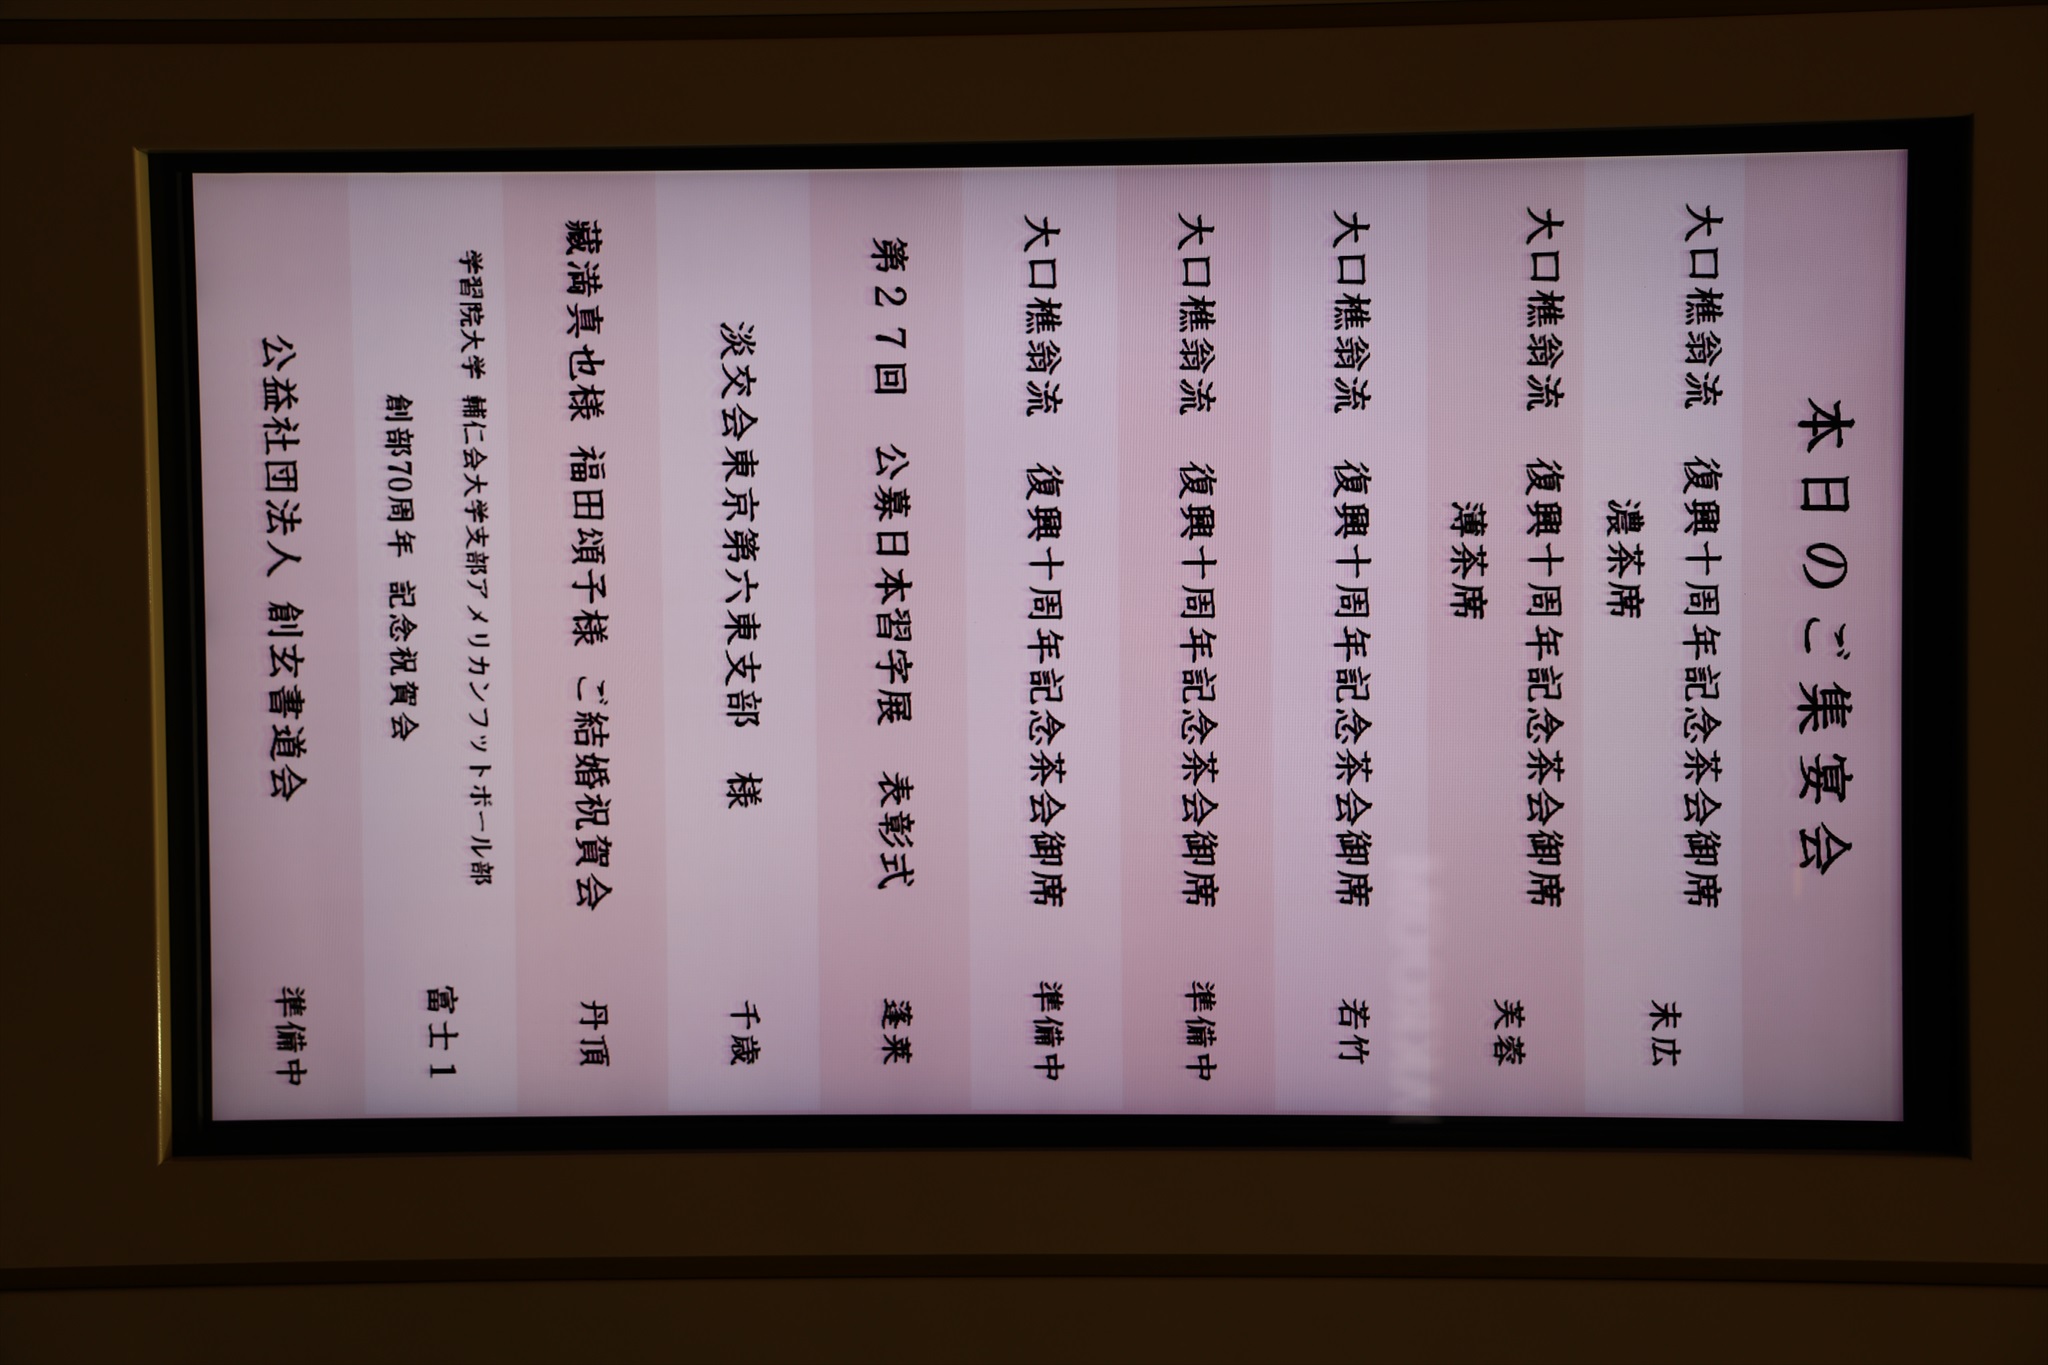 本日のご集宴会
大口樵翁流 復興十周年記念茶会御席
濃茶席
末広
大口樵翁流 復興十周年記念茶会御席
薄茶席
芙蓉
大口樵翁流 復興十周年記念茶会御席 若竹
大口樵翁流 復興十周年記念茶会御席 準備中
大口樵翁流 復興十周年記念茶会御席 準備中
第27回 公募日本習字展 表彰式 蓬莱
淡交会東京第六東支部 様 千歳
藏満真也様 福田頌子様 ご結婚祝賀会 丹頂
学習院大学 輔仁会大学支部アメリカンフットボール部
創部70周年 記念祝賀会
富士1
公益社団法人 創玄書道会 準備中